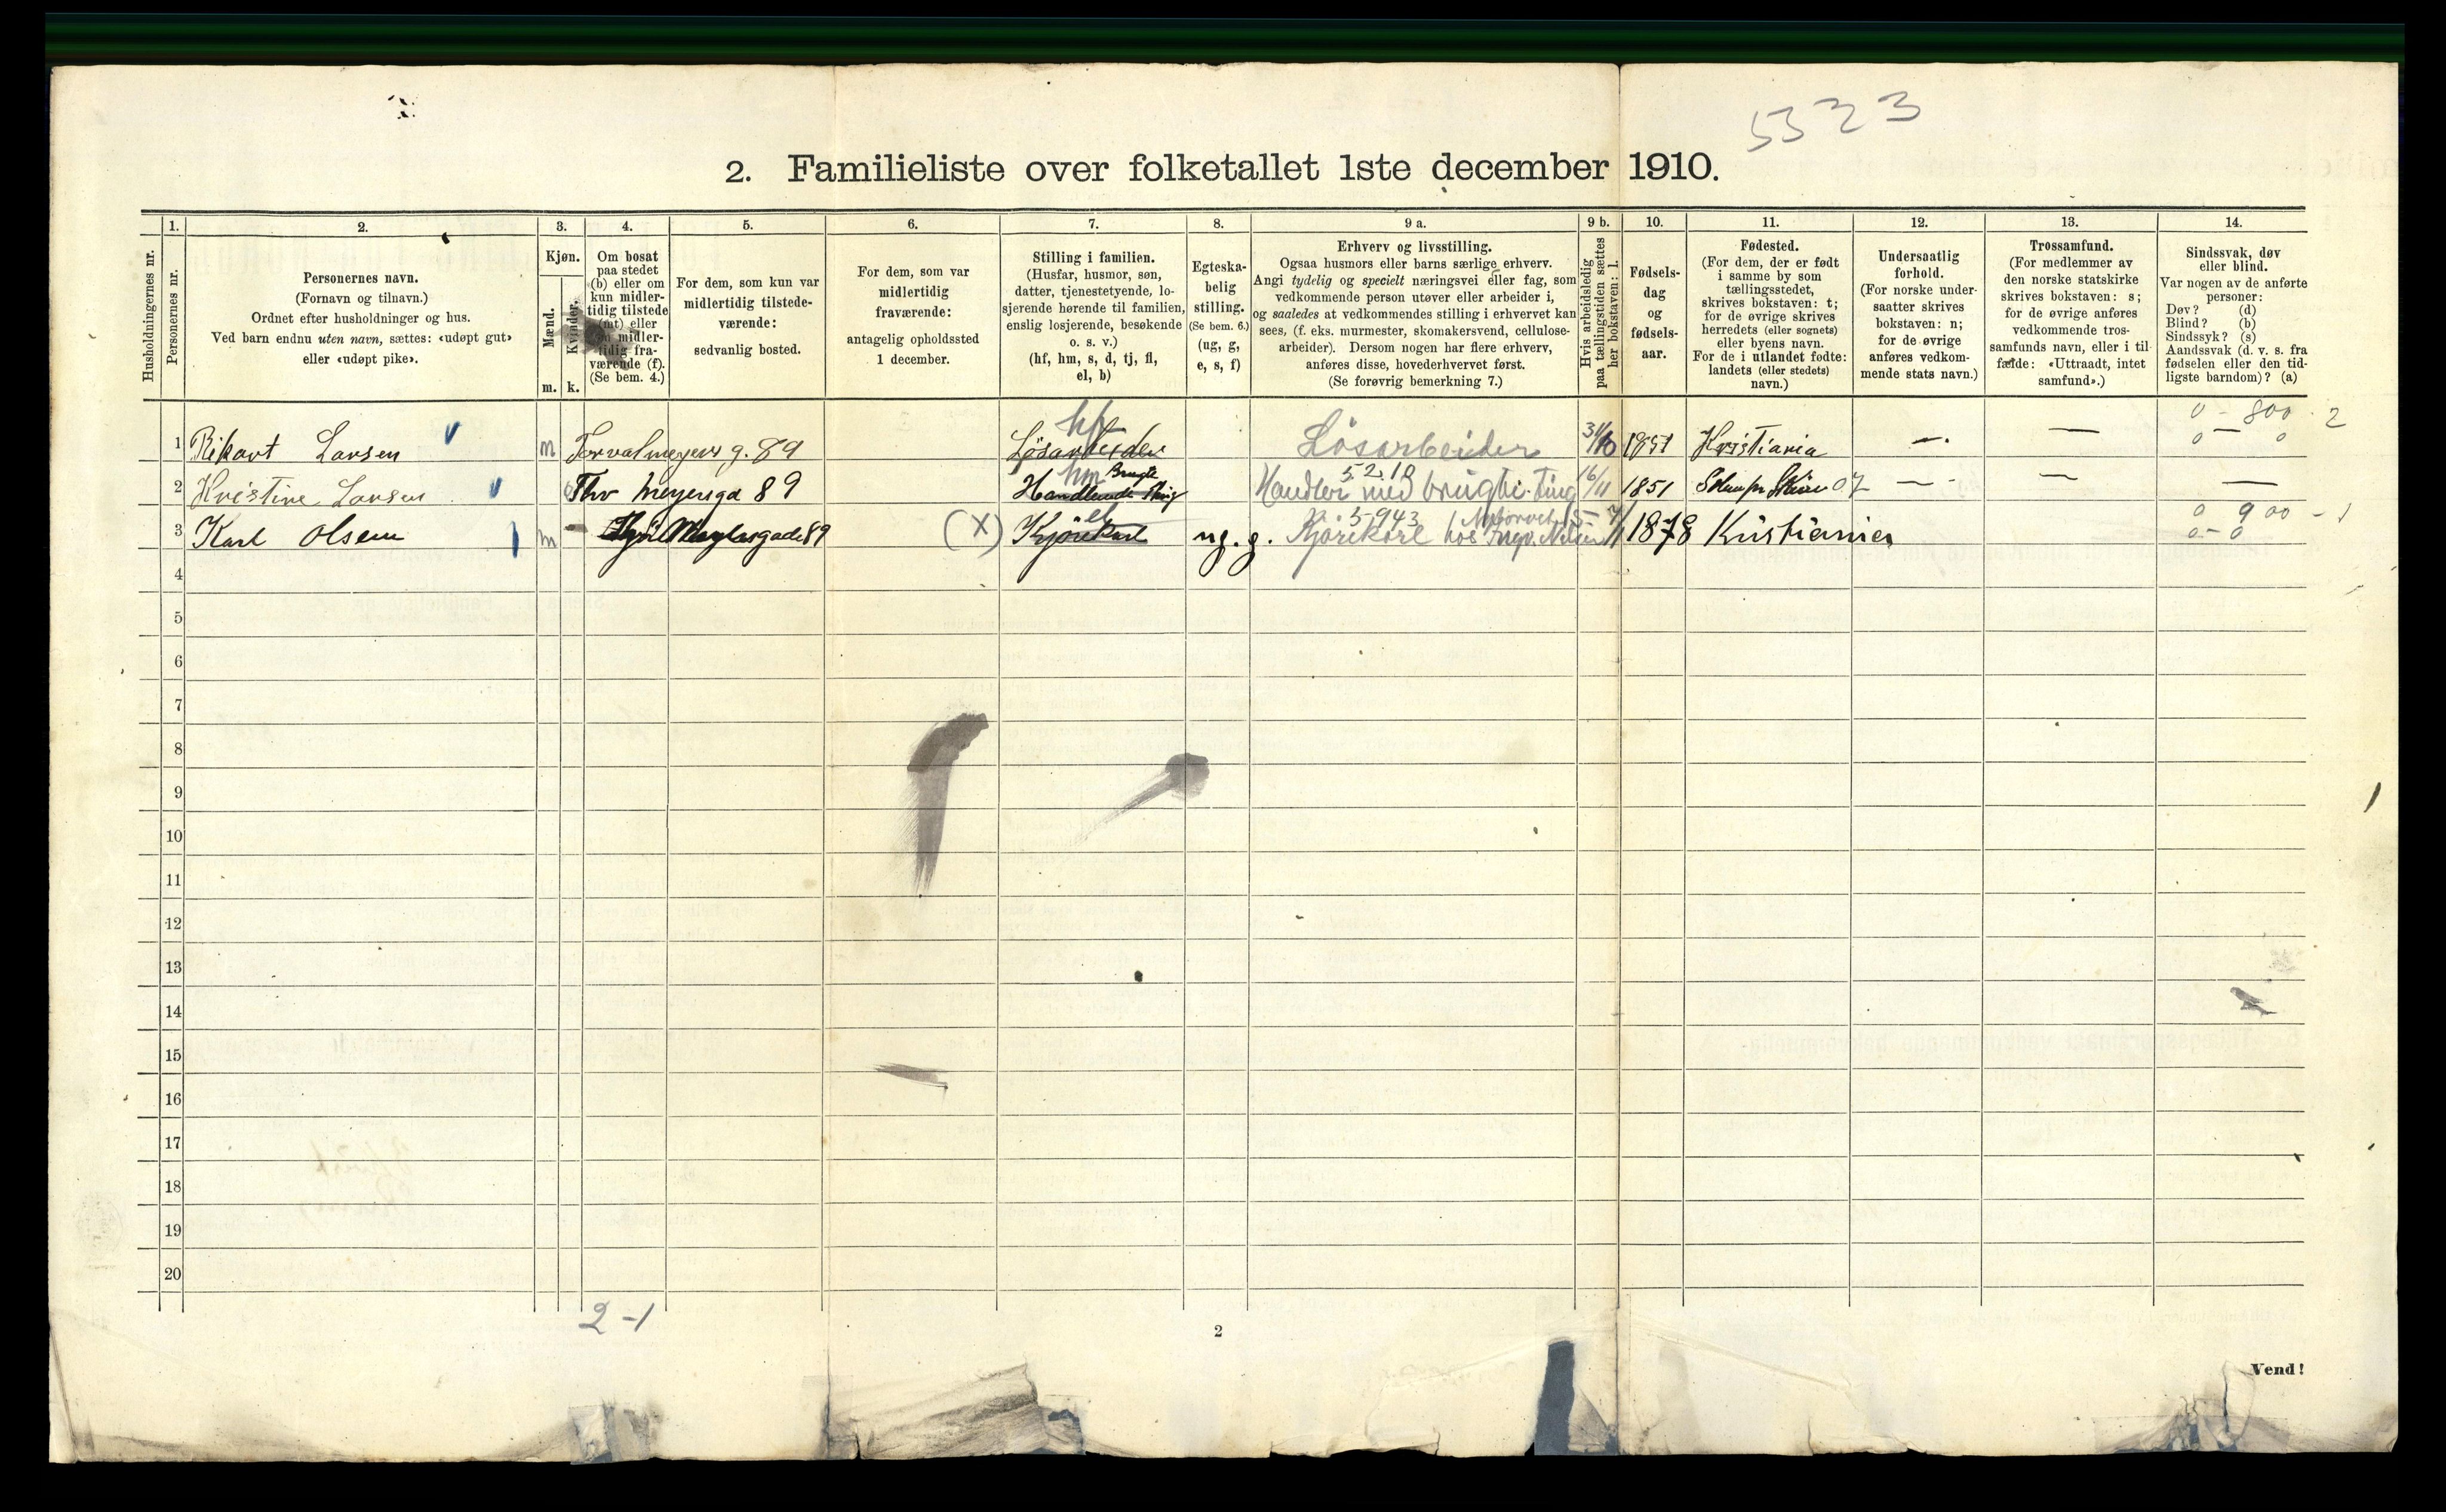 5323
2. Familieliste over folketallet 1ste december 1910.
Husholdningernes nr.
1.
Personernes nr.
2.
Personernes navn.
(Fornavn og tilnavn.)
Ordnet efter husholdninger og hus.
Ved barn endnu uten navn, sættes: «udøpt gut»
eller «udøpt pike».
3.
Kjøn.
Mænd.
Kvinder.
m.
k.
4.
Om bosat
paa stedet
(b) eller om
kun midler-
tidig tilstede
(mt) eller
om midler-
tidig fra-
værende (f).
(Se bem. 4.)
5.
For dem, som kun var
midlertidig tilstede-
værende:
sedvanlig bosted.
6.
For dem, som var
midlertidig
fraværende:
antagelig opholdssted
1 december.
7.
Stilling i familien.
(Husfar, husmor, søn,
datter, tjenestetyende, lo-
sjerende hørende til familien,
enslig losjerende, besøkende
o. s. v.)
(hf, hm, s, d, tj, fl,
el, b)
8.
Egteska-
belig
stilling.
(Se bem. 6.)
(ug, g,
e, s, f)
9 a.
Erhverv og livsstilling.
Ogsaa husmors eller barns særlige erhverv.
Angi tydelig og specielt næringsvei eller fag, som
vedkommende person utøver eller arbeider i,
og saaledes at vedkommendes stilling i erhvervet kan
sees, (f. eks. murmester, skomakersvend, cellulose-
arbeider). Dersom nogen har flere erhverv,
anføres disse, hovederhvervet først.
(Se forøvrig bemerkning 7.)
9 b.
Hvis arbeidsledig
paa tællingstiden sættes
her bokstaven: l.
10.
Fødsels-
dag
og
fødsels-
aar.
11.
Fødested.
(For dem, der er født
i samme by som
tællingsstedet,
skrives bokstaven: t;
for de øvrige skrives
herredets (eller sognets)
eller byens navn.
For de i utlandet fødte:
landets (eller stedets)
navn.)
12.
Undersaatlig
forhold.
(For norske under-
saatter skrives
bokstaven: n;
for de øvrige
anføres vedkom-
mende stats navn.)
13.
Trossamfund.
(For medlemmer av
den norske statskirke
skrives bokstaven: s;
for de øvrige anføres
vedkommende tros-
samfunds navn, eller i til-
fælde: «Uttraadt, intet
samfund».)
14.
Sindssvak, døv
eller blind.
Var nogen av de anførte
personer:
Døv? (d)
Blind? (b)
Sindssyk? (s)
Aandssvak (d. v. s. fra
fødselen eller den tid-
ligste barndom)? (a)
1 Rikart Larsen m Torvalmeyers g. 89 Løsarbeider hf Løsarbeider 31/10 1851 Kristiania — — 0 - 800 2
0 — 0
2 Kristine Larsen Thv Meyersgd 89 Handlende Brugte ting hm 5210 Handler med brugte ting 16/11 1851 07 — — —
3 Karl Olsen m Meyersgade 89 (X) Kjørekarl el ug. g. 5943 Kjørekarl hos 1878 Kristiania 0 900 - 1
0 - 0
4
5
6
7
8
9
10
11
12
13
14
15
16
17
18
19
20
2-1
2
Vend!